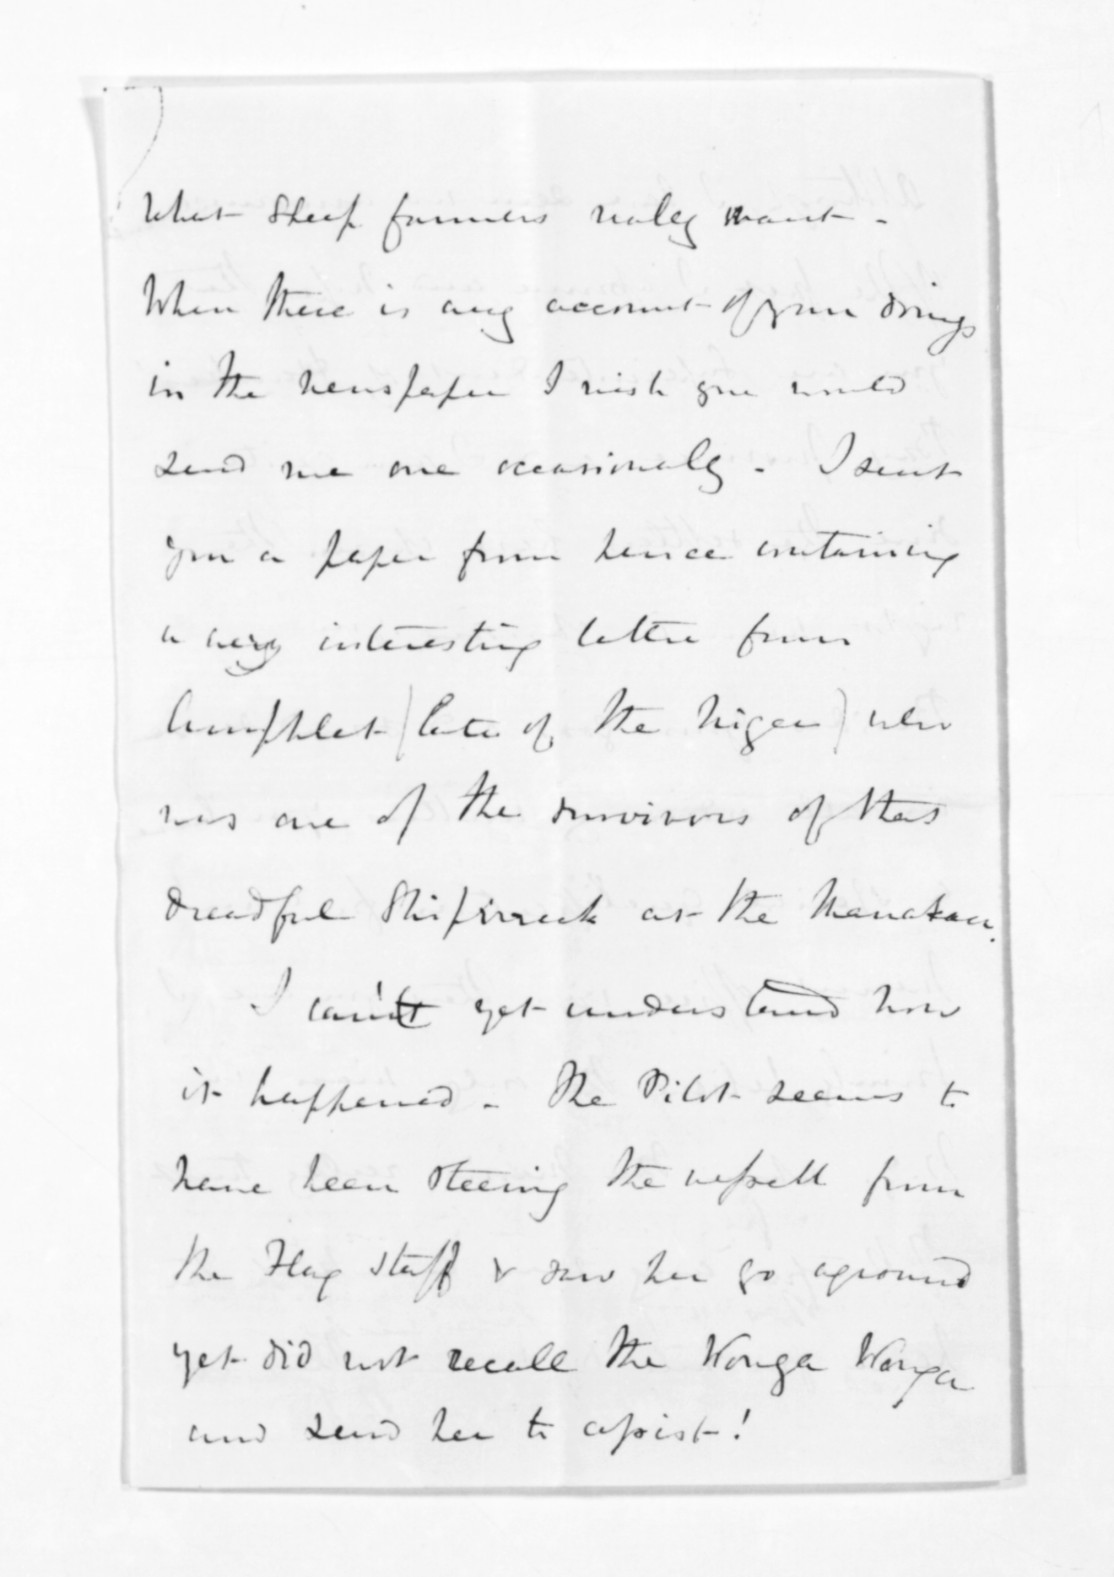 What Sheep farmers realy want -
When there is any account of your doings
in the newspaper I wish you would
send me one occasionaly - I sent
you a paper from hence containing
a very interesting letter from
(late of the Niger) who
was one of the survivors of that
dreadful Shipwreck at the Manakau.
I can't yet understand how
it happened - The Pilot seems to
have been steering the vessell from
the Flag staff & saw her go aground
yet did not recall the Wonga Wonga
and send her to assist!